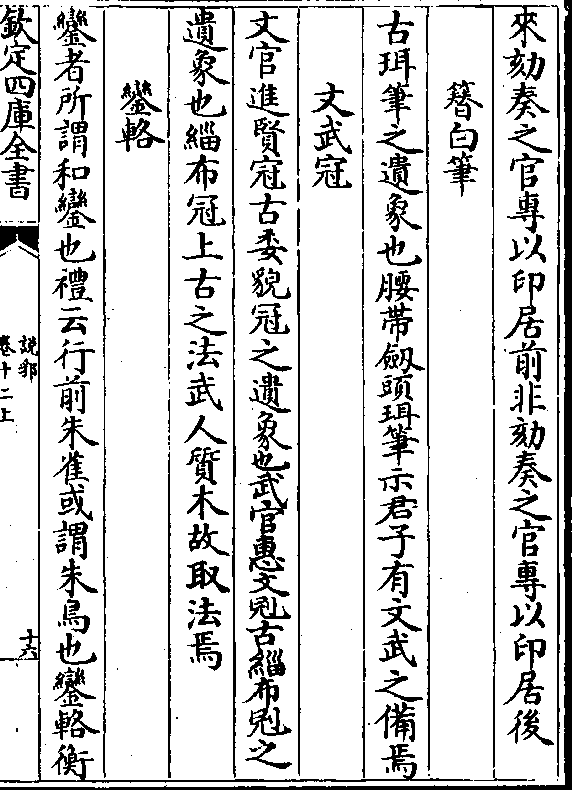 來劾奏之官專以印居前非劾奏之官專以印居後
簪白筆
古珥筆之遺象也腰帶劔頭珥筆示君子有文武之備焉
文武冠
文官進賢冠古委貌冠之遺象也武官惠文冠古緇布冠之
遺象也緇布冠上古之法武人質木故取法焉
鑾輅
鑾者所謂和鑾也禮云行前朱雀或謂朱鳥也鑾輅衡
欽定四庫全書
說郛
卷十二上
十六